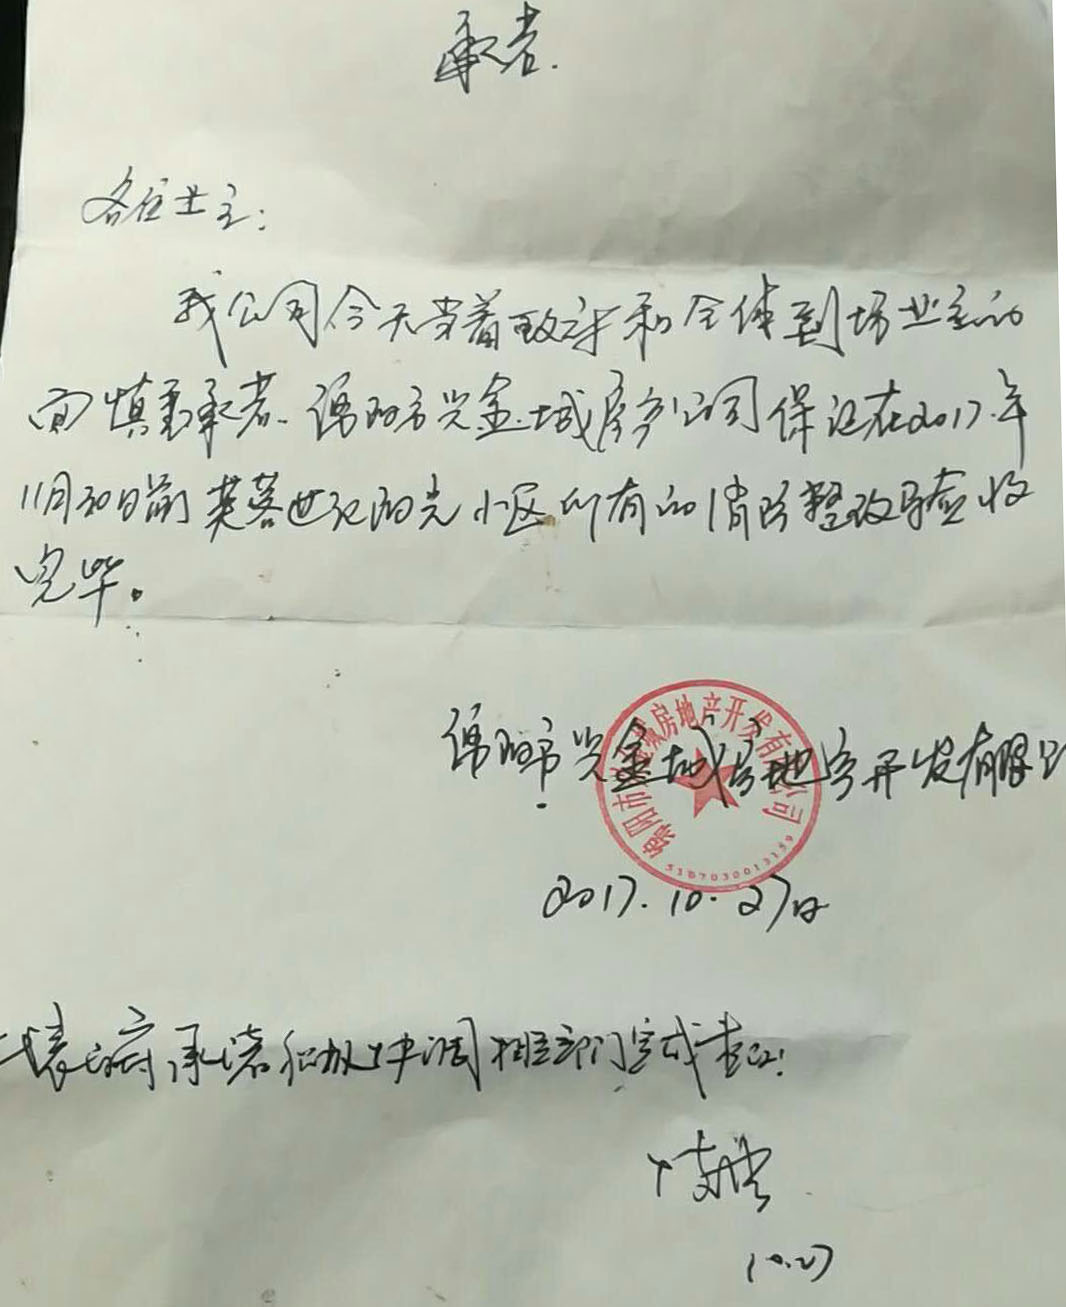 承诺.
各位业主:
我公司今天当着政府和全体到场业主的
面慎重承诺.绵阳市兴金城房产公司保证在2017.年
11月30日前芙蓉世纪阳光小区所有的消防整改验收
完毕。
绵阳市兴金城房地产开发有限公
绵阳市 房地产开发有 公司
5107030013159
2017.10.27日
承诺积极协调相关部门完成
10.27